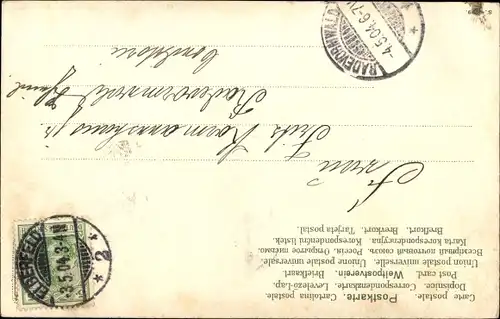 Carte postale. Postkarte. Cartolina postale.
Dopisnice. Correspondenzkarte. Levelező-Lap.
Post card. Weltpostverein. Briefkaart.
Union postale universelle. Unione postale universale.
Всемірный почтовый союзъ. Россія. Открытое письмо.
Karta korespondencyjna. Korespondenční listek.
Brefkort. Brevkort. Tarjeta postal.
Frau
Fritz
Radevormwald
ELBERFELD
3.5.04.3-
* 2 *
RADEVORMWALD
4.5.04.6-7V
*